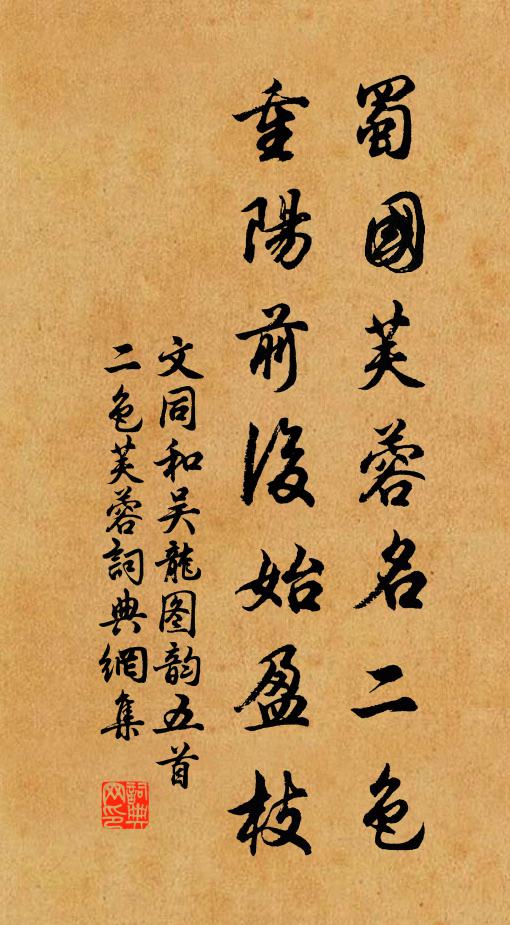 蜀國芙蓉名二色
重陽前後始盈枝
文同和吴龍图韵五首
二色芙蓉詞典網集
詞典网印